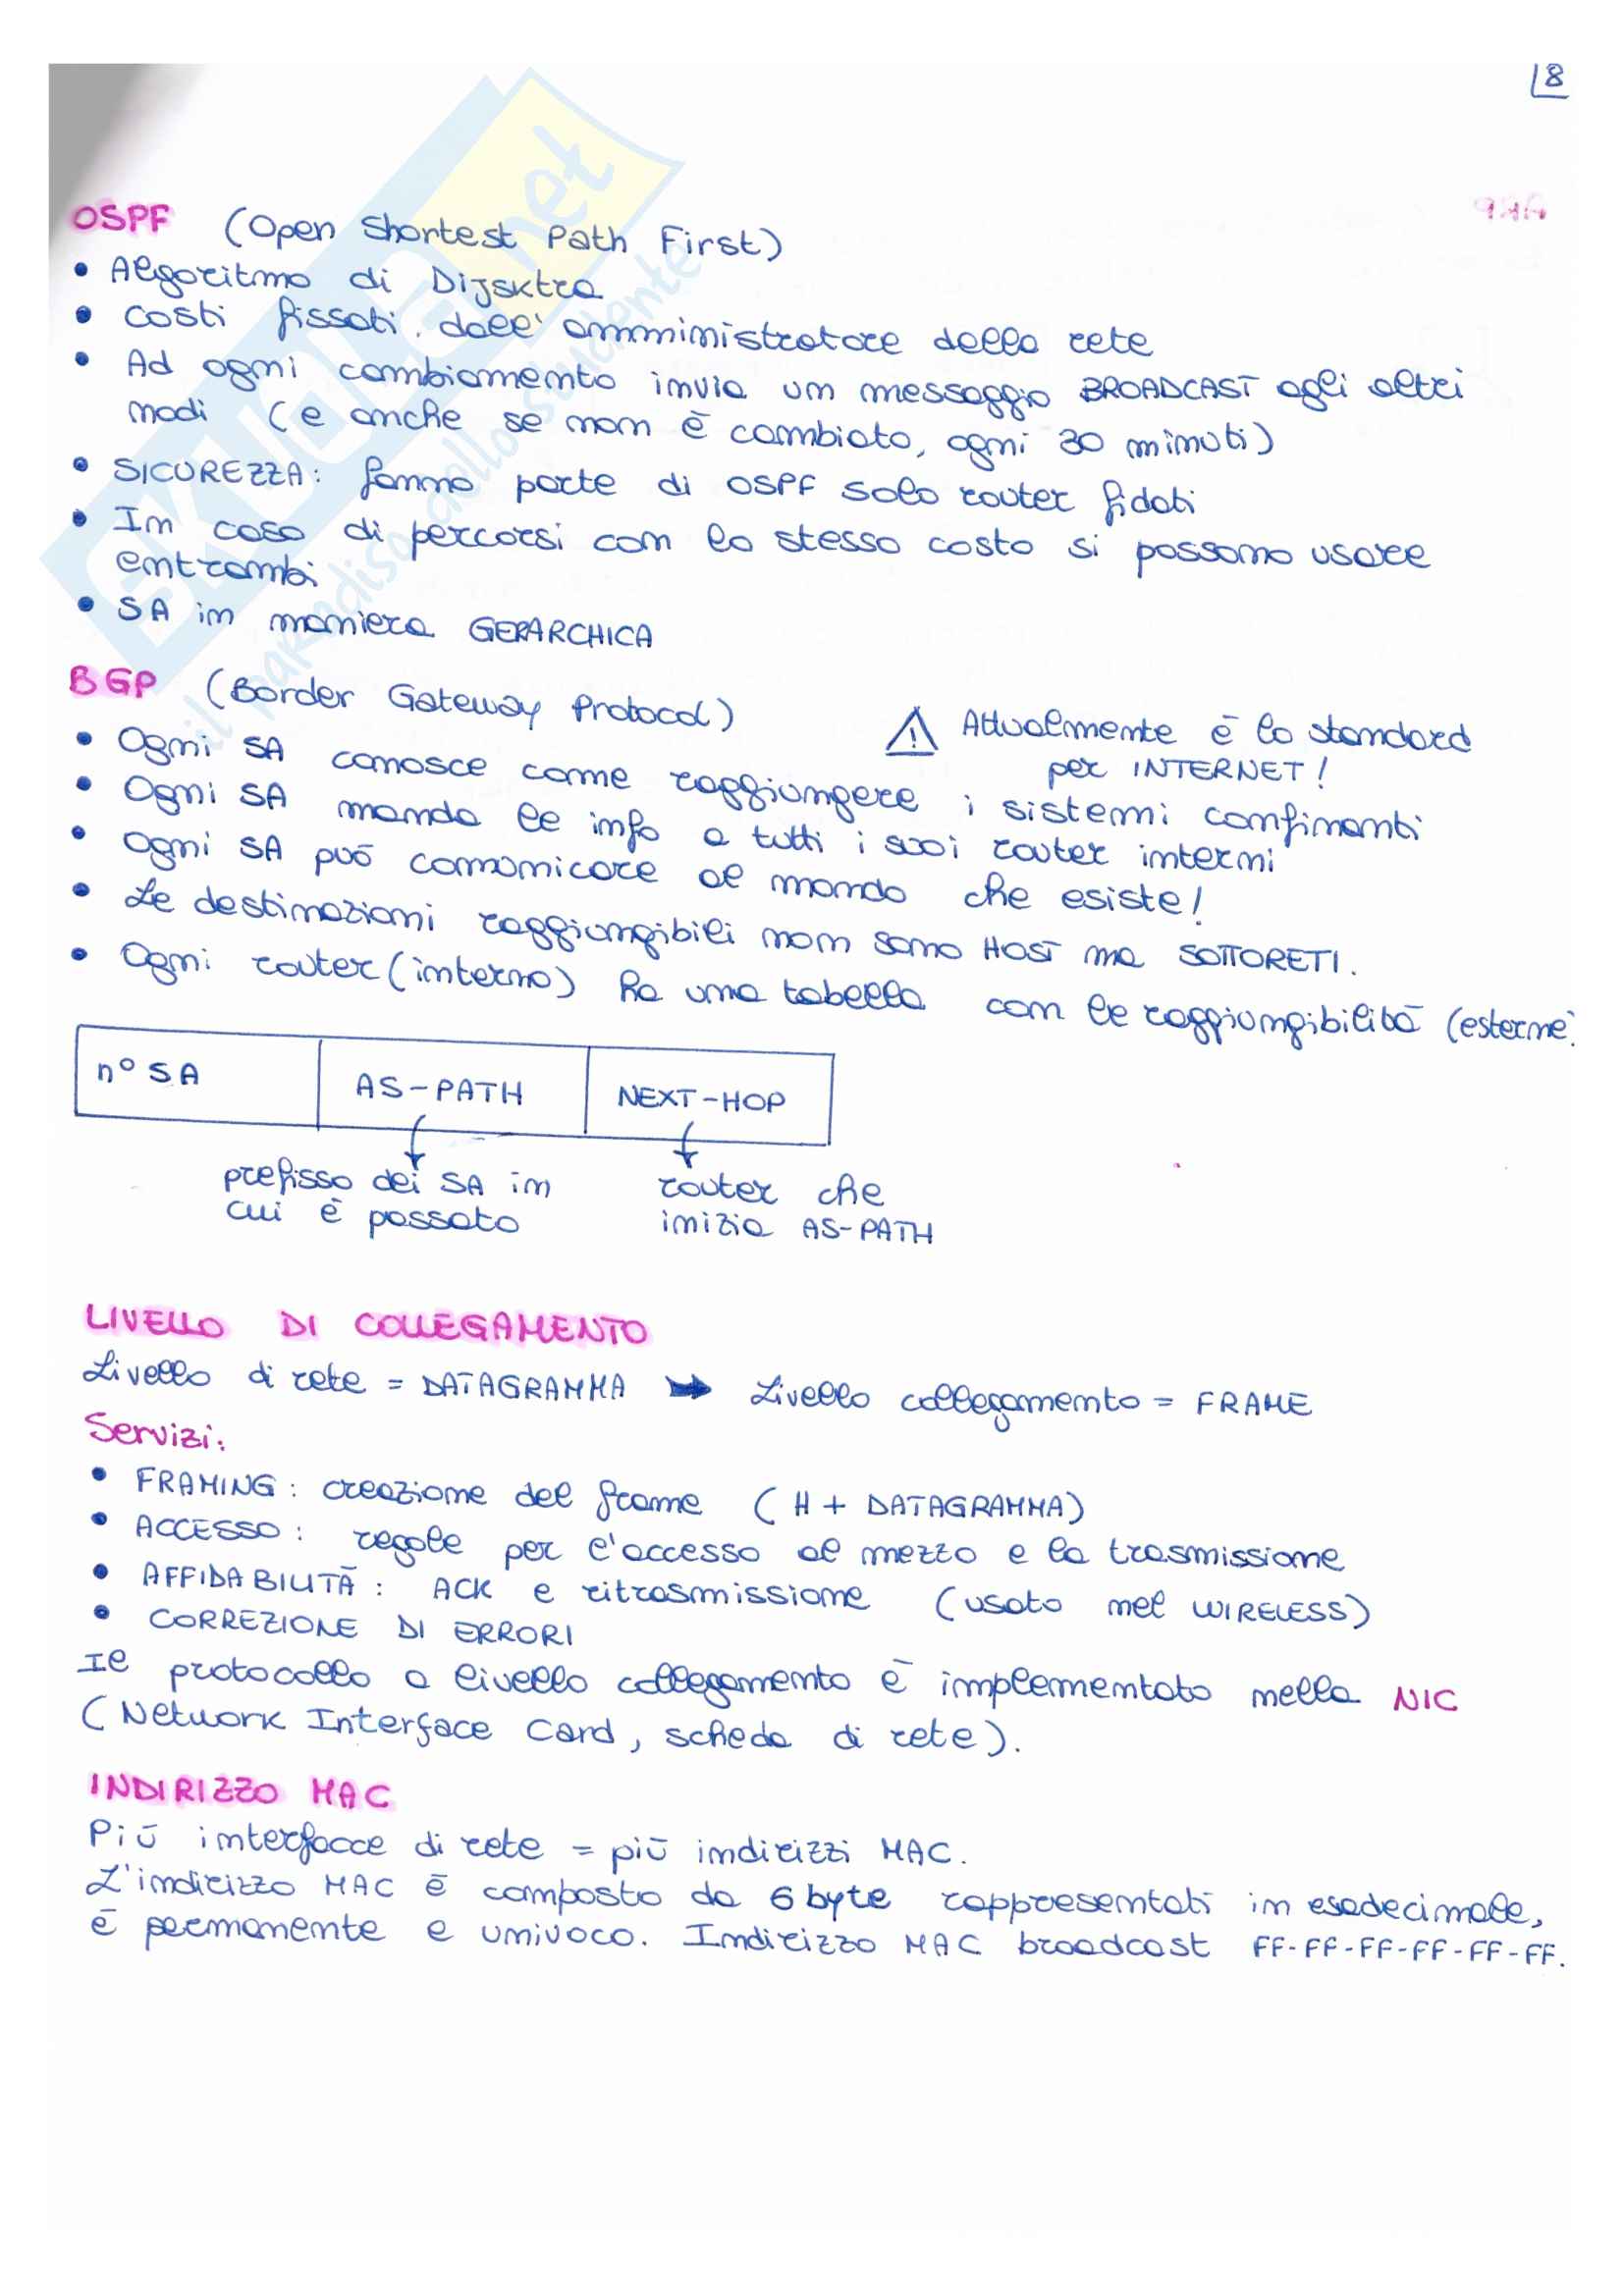 8
OSPF (Open Shortest Path First)
• Algoritmo di Dijsktra
• Costi fissati dall'amministratore della rete
• Ad ogni cambiamento invia un messaggio BROADCAST agli altri
nodi (e anche se non è cambiato, ogni 30 minuti)
• SICUREZZA: fanno parte di OSPF solo router fidati
• In caso di percorsi con lo stesso costo si possono usare
entrambi
• SA in maniera GERARCHICA
BGP (Border Gateway Protocol)
⚠ Attualmente è lo standard
per INTERNET!
• Ogni SA conosce come raggiungere i sistemi confinanti
• Ogni SA manda le info a tutti i suoi router interni
• Ogni SA può comunicare al mondo che esiste!
• Le destinazioni raggiungibili non sono HOST ma SOTTORETI.
• Ogni router (interno) ha una tabella con le raggiungibilità (esterne)
n° SA AS-PATH NEXT-HOP
prefisso dei SA in
cui è passato
router che
inizia AS-PATH
LIVELLO DI COLLEGAMENTO
Livello di rete = DATAGRAMMA → Livello collegamento = FRAME
Servizi:
• FRAMING: creazione del frame (H + DATAGRAMMA)
• ACCESSO: regole per l'accesso al mezzo e la trasmissione
• AFFIDABILITÀ: ACK e ritrasmissione (usato nel WIRELESS)
• CORREZIONE DI ERRORI
Il protocollo a livello collegamento è implementato nella NIC
(Network Interface Card, scheda di rete).
INDIRIZZO MAC
Più interfacce di rete = più indirizzi MAC.
L'indirizzo MAC è composto da 6 byte rappresentati in esadecimale,
è permanente e univoco. Indirizzo MAC broadcast FF-FF-FF-FF-FF-FF.
SKUOLA.net
il paradiso dello studente